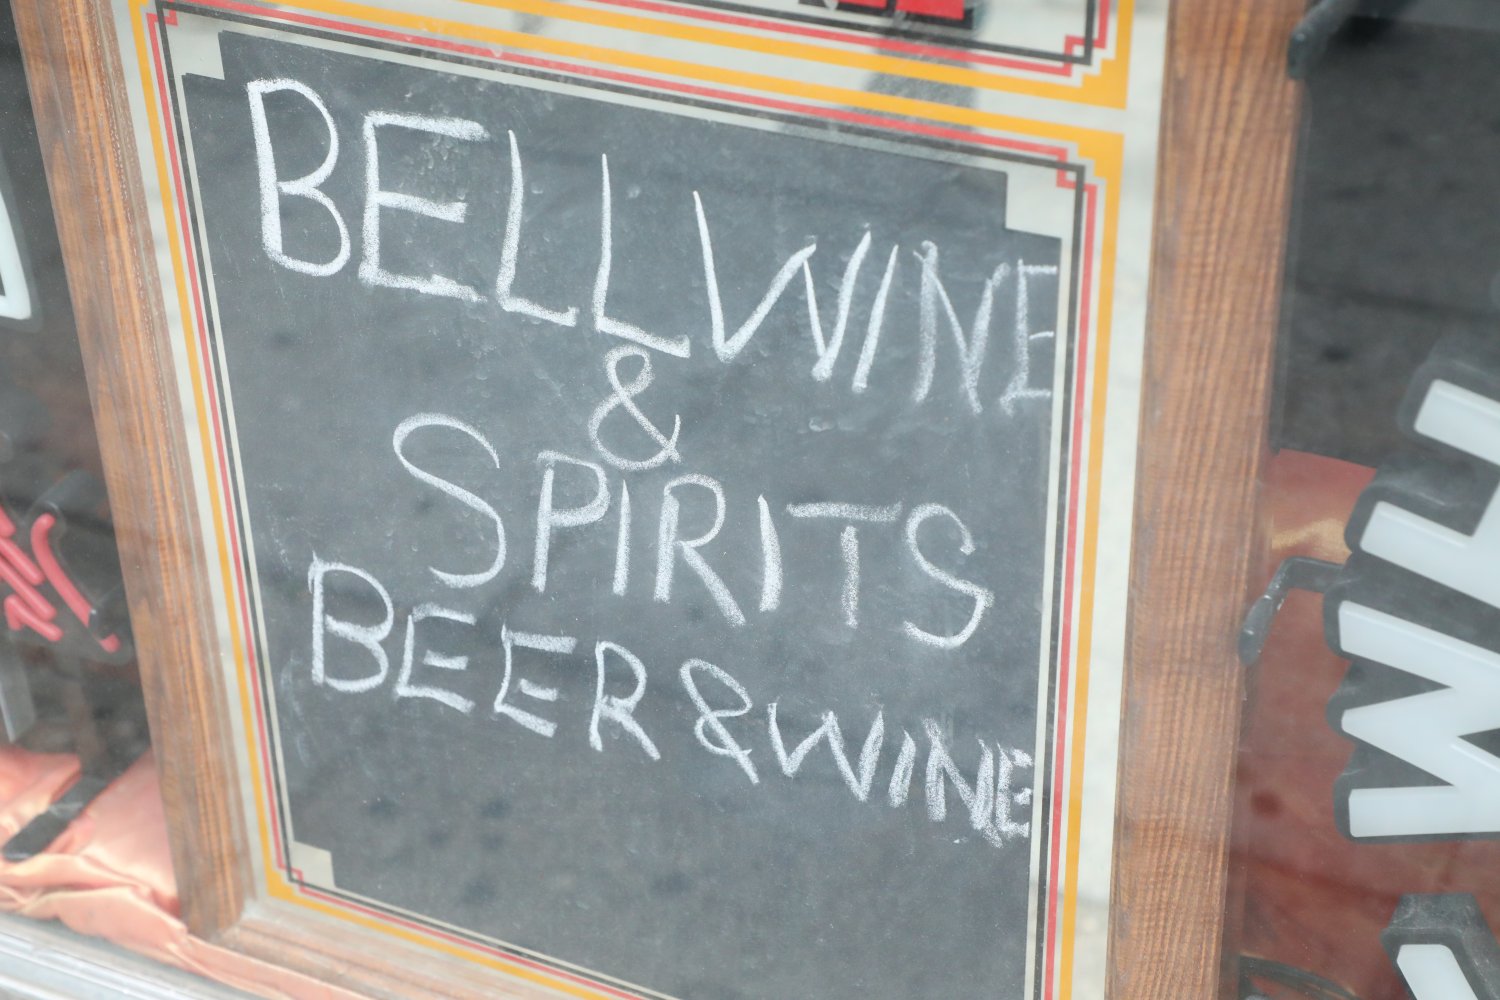 BELL WINE
&
SPIRITS
BEER & WINE
WH